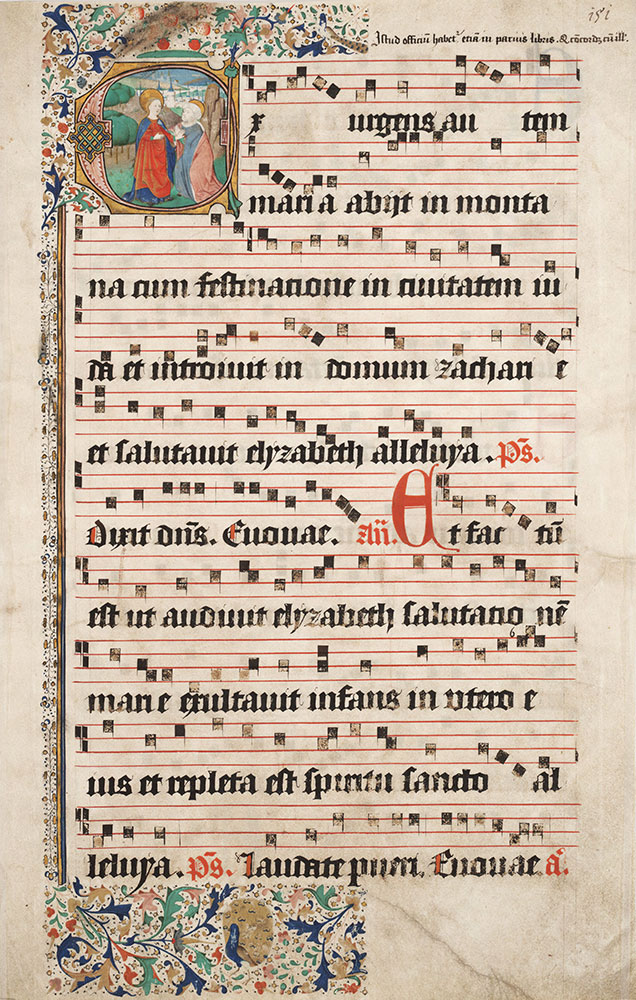 151
Istud officiū habet᷑ etiā in paruis libris . & cōcordꝫ cū ill᷑.
Exurgens au tem
mari a abijt in monta
na cum festinacione in ciuitatem iu
da et introiuit in domum zachari e
et salutauit elyzabeth alleluya . p̄s.
Dixit dn̄s. Euouae. An̄. Et fac tū
est ut audiuit elyzabeth salutacio nē
mari e exultauit infans in vtero e
ius et repleta est spiritu sancto al
leluya . p̄s. Laudate pueri. Euouae a᷑.